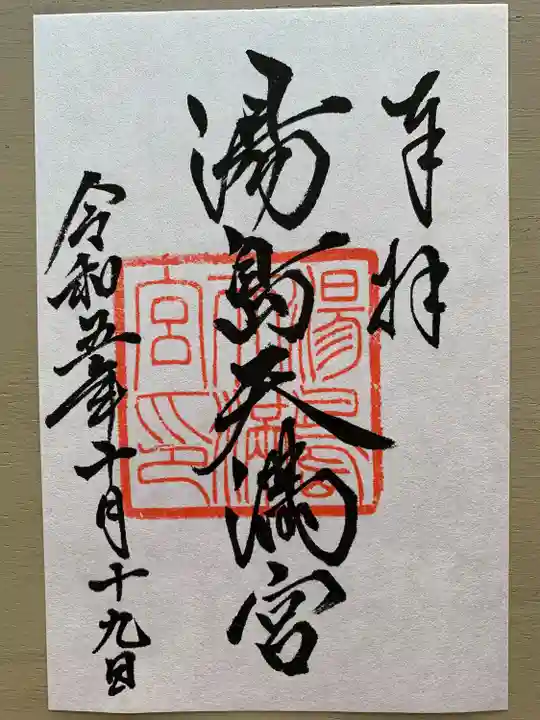 奉拝
湯島天満宮
令和五年十月十九日
湯島
天満
宮印